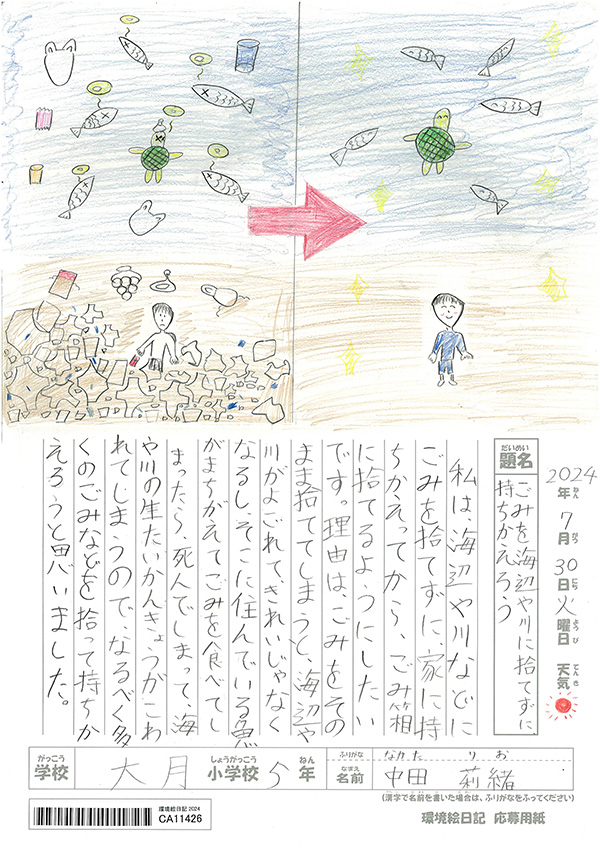 2024年7月30日火曜日 天気
ねん がつ にち ようび てんき
だいめい
題名
ごみを海辺や川に捨てずに
持ちかえろう
私は、海辺や川などに
ごみを捨てずに、家に持
ちかえってから、ごみ箱
に捨てるようにしたい
です。理由は、ごみをその
まま捨ててしまうと、海辺や
川がよごれて、きれいじゃなく
なるし、そこに住んでいる魚
がまちがえてごみを食べてし
まったら、死んでしまって、海
や川の生たいかんきょうがこわ
れてしまうので、なるべく多
くのごみなどを拾って持ちか
えろうと思いました。
がっこう しょうがっこう ねん ふりがな なかた りお
学校 大月 小学校 5年 なまえ 名前 中田 莉緒
(漢字で名前を書いた場合は、ふりがなをふってください)
環境絵日記2024
CA11426
環境絵日記 応募用紙